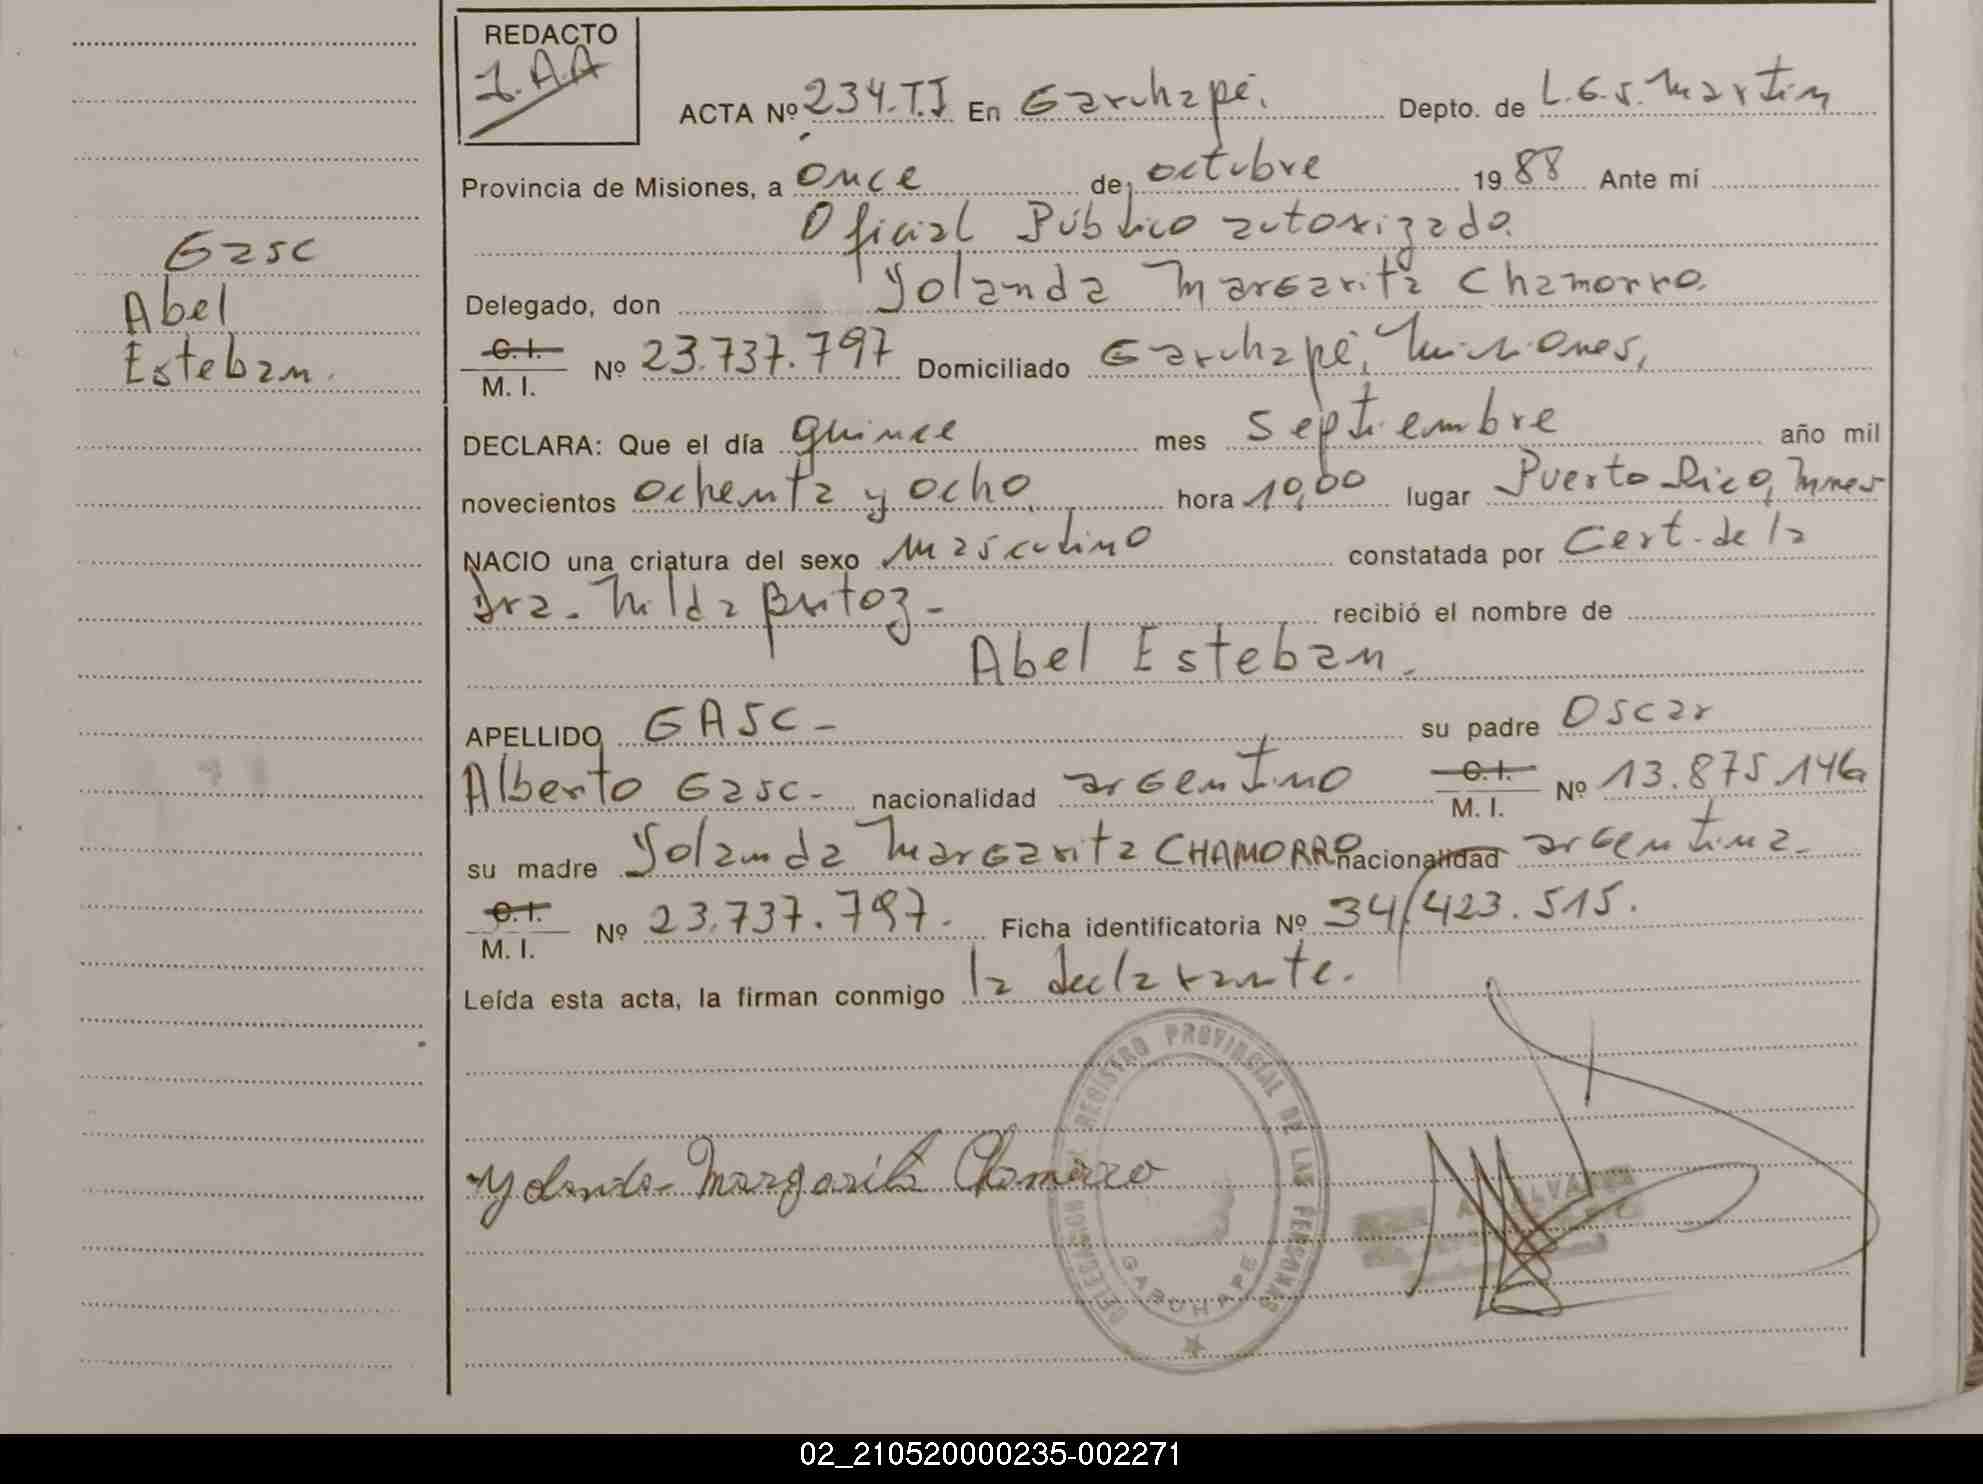 REDACTO
J.A.A
ACTA Nº 234.T.I En Garuhapé. Depto. de L.G.S. Martín
Provincia de Misiones, a once de octubre 1988 Ante mí
Oficial Público autorizado.
Delegado, don Yolanda Margarita Chamorro.
C. I.
M. I. Nº 23.737.797 Domiciliado Garuhapé, Misiones,
DECLARA: Que el día quince mes septiembre año mil
novecientos ochenta y ocho hora 10,00 lugar Puerto Rico, Mnes
NACIO una criatura del sexo masculino constatada por Cert. de la
Dra. Nilda recibió el nombre de
Abel Esteban.
APELLIDO GASC - su padre Oscar
Alberto Gasc - nacionalidad argentino C. I.
M. I. Nº 13.875.146
su madre Yolanda Margarita CHAMORRO nacionalidad argentina.
C. I.
M. I. Nº 23.737.797. Ficha identificatoria Nº 34/423.515.
Leída esta acta, la firman conmigo la declarante.
Yolanda Margarita Chamorro
REGISTRO PROVINCIAL DE LAS PERSONAS
DELEGACION
GARUHAPE
ALVAREZ
Gasc
Abel
Esteban.
02_210520000235-002271